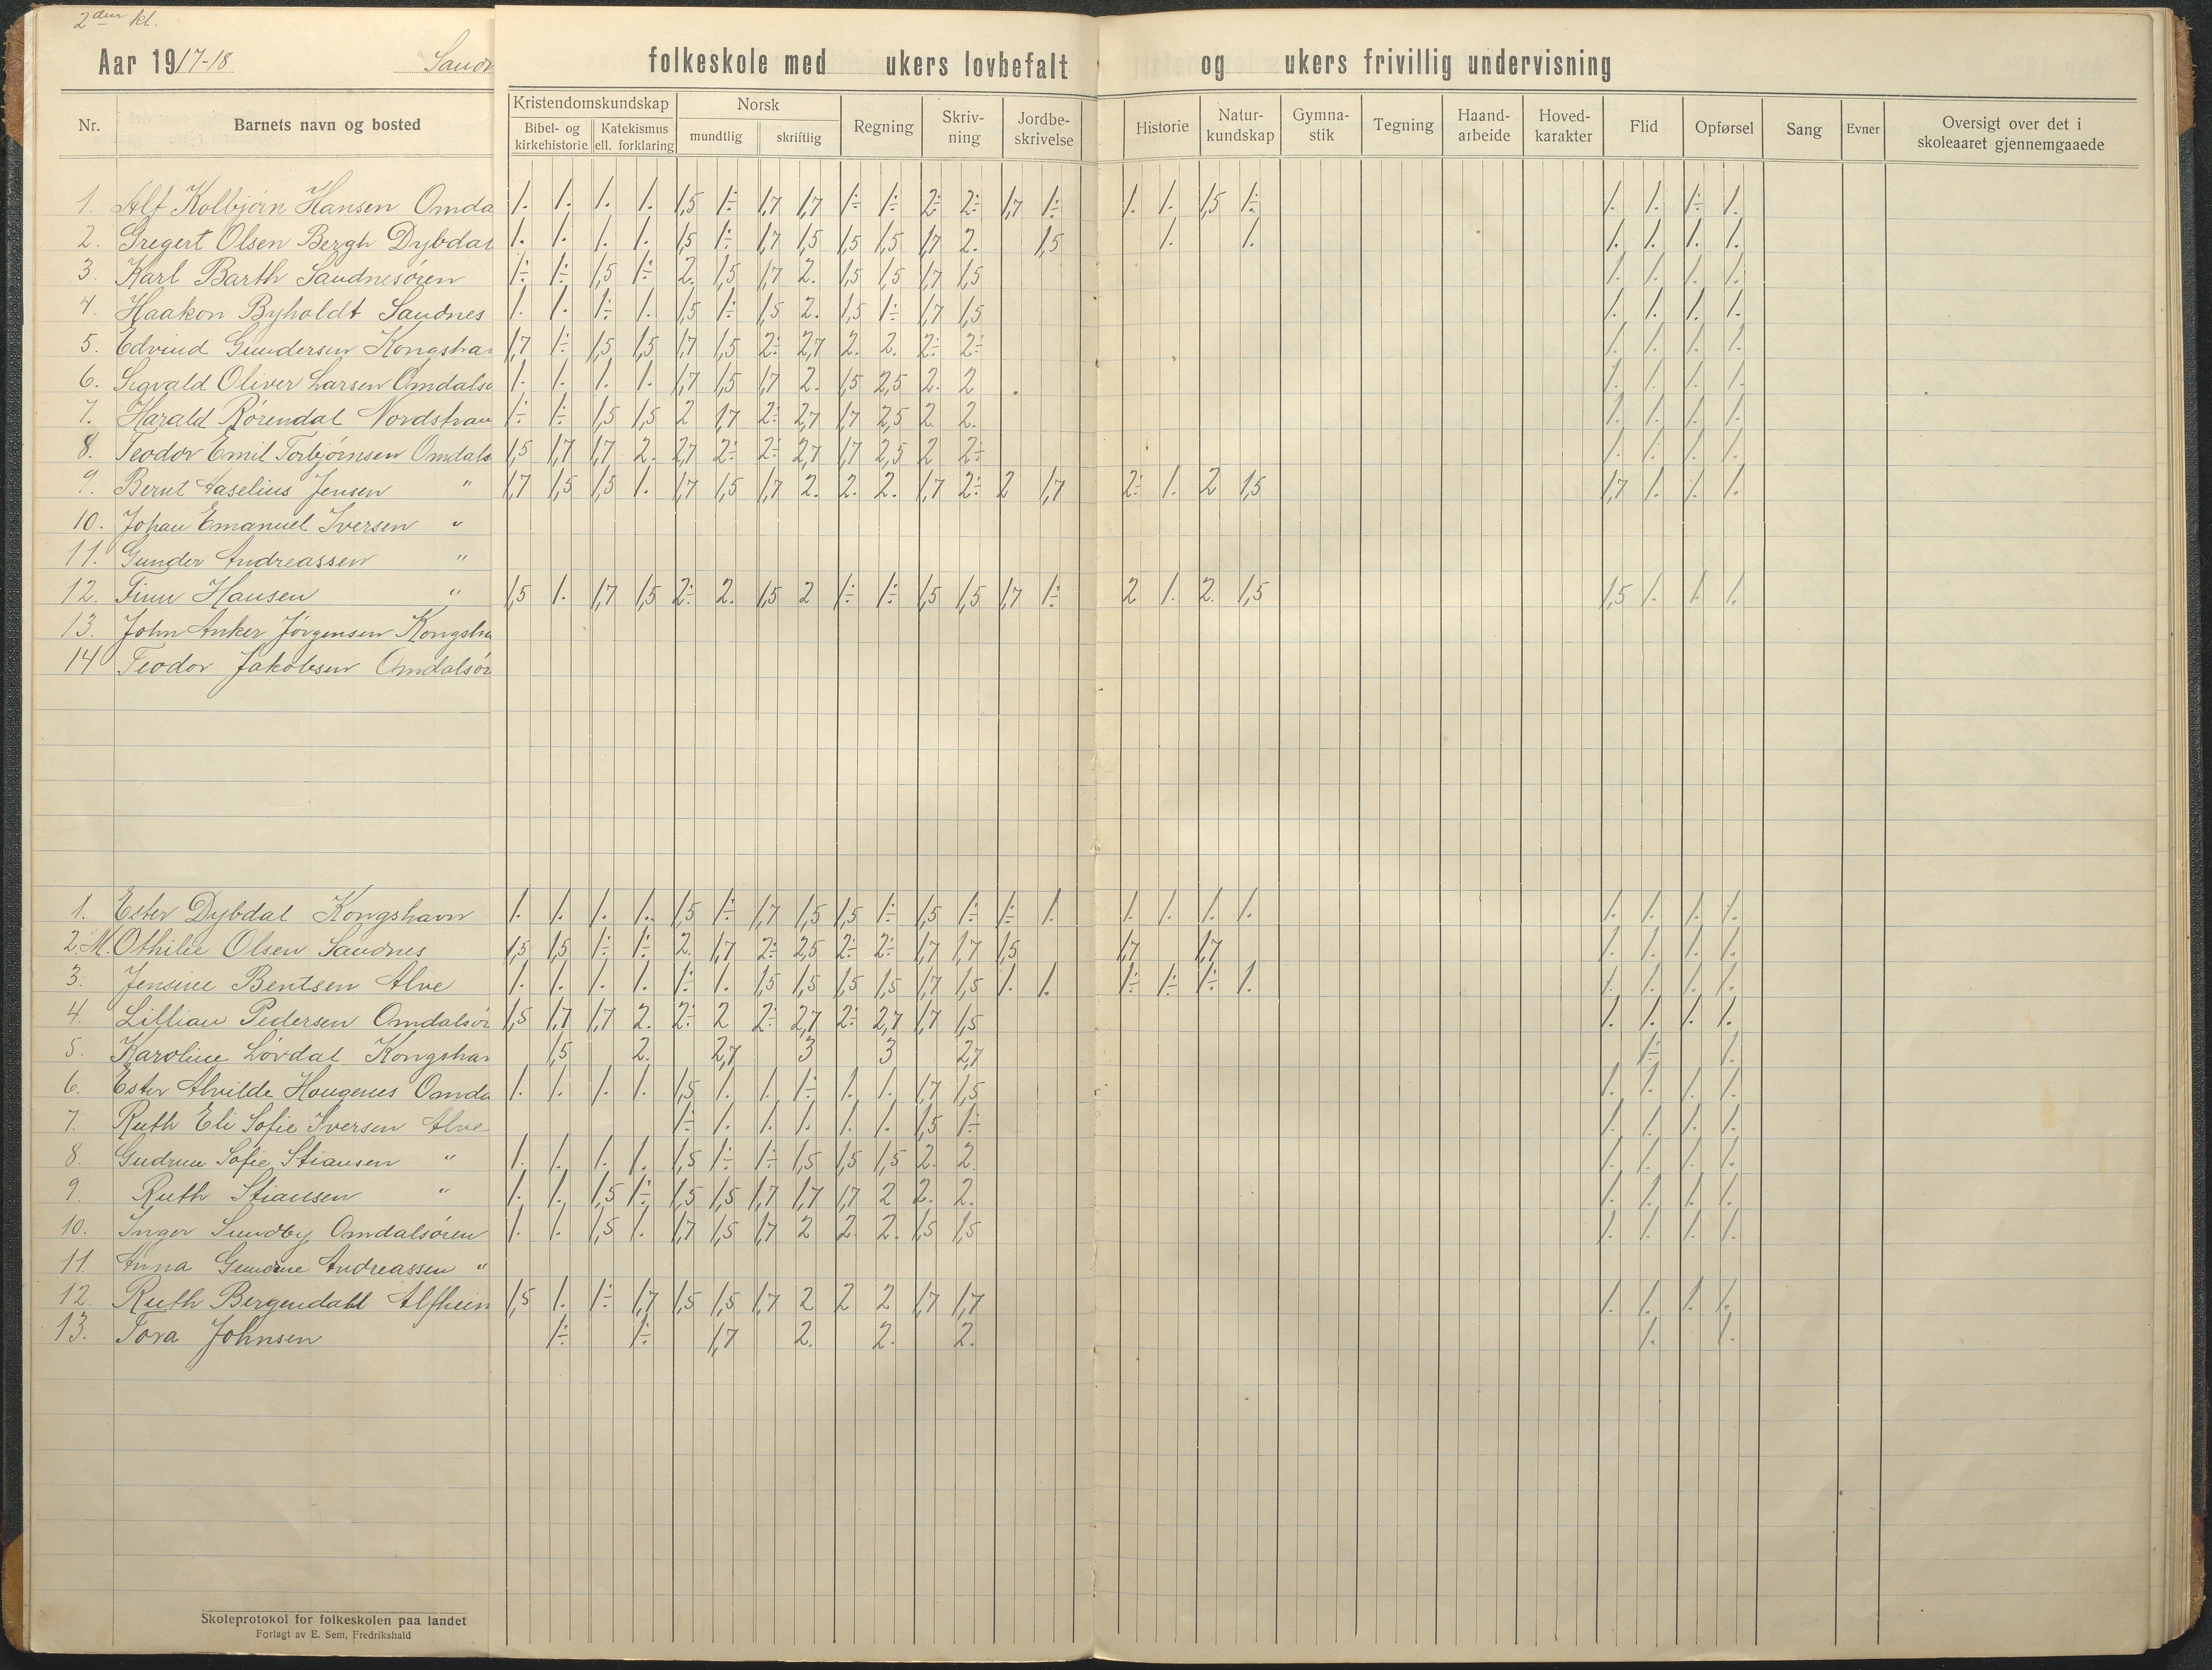 2den kl.
Aar 1917-18 Sand folkeskole med ukers lovbefalt og ukers frivillig undervisning
Nr. Barnets navn og bosted Kristendomskundskap Bibel- og kirkehistorie Katekismus ell. forklaring Norsk mundtlig skriftlig Regning Skriv-ning Jordbe-skrivelse Historie Natur-kundskap Gymna-stik Tegning Haand-arbeide Hoved-karakter Flid Opførsel Sang Evner Oversigt over det i skoleaaret gjennemgaaede
1. Alf Kolbjørn Hansen Omda 1. 1. 1. 1. 1,5 1÷ 1,7 1,7 1÷ 1÷ 2÷ 2÷ 1,7 1÷ 1. 1. 1,5 1÷ 1. 1. 1÷ 1.
2. Gregert Olsen Bergh Dybdal 1. 1. 1. 1. 1,5 1÷ 1,7 1,5 1,5 1,5 1,7 2. 1,5 1. 1. 1. 1. 1. 1.
3. Karl Barth Sandnesøren 1÷ 1÷ 1,5 1÷ 2. 1,5 1,7 2. 1,5 1,5 1,7 1,5 1. 1. 1. 1.
4. Haakon Byholdt Sandnes 1. 1. 1÷ 1. 1,5 1÷ 1,5 2. 1,5 1÷ 1,7 1,5 1. 1. 1. 1.
5. Edvind Gundersen Kongshav 1,7 1÷ 1,5 1,5 1,7 1,5 2÷ 2,7 2. 2. 2÷ 2÷ 1. 1. 1. 1.
6. Sigvald Oliver Larsen Omdalsø 1. 1. 1. 1. 1,7 1,5 1,7 2. 1,5 2,5 2. 2 1. 1. 1. 1.
7. Harald Rørendal Nordstran 1÷ 1÷ 1,5 1,5 2 1,7 2÷ 2,7 1,7 2,5 2. 2. 1. 1. 1. 1.
8. Teodor Emil Torbjørnsen Omdals 1,5 1,7 1,7 2. 2,7 2÷ 2÷ 2,7 1,7 2,5 2 2÷ 1. 1. 1. 1.
9. Bernt Aaselius Jensen " 1,7 1,5 1,5 1. 1,7 1,5 1,7 2. 2. 2. 1,7 2÷ 2 1,7 2÷ 1. 2 1,5 1,7 1. 1. 1.
10. Johan Emanuel Iversen "
11. Gunder Andreassen "
12. Finn Hansen " 1,5 1. 1,7 1,5 2÷ 2. 1,5 2 1÷ 1÷ 1,5 1,5 1,7 1÷ 2 1. 2. 1,5 1,5 1. 1. 1.
13. John Anker Jørgensen Kongsha
14 Teodor Jakobsen Omdalsør
1. Ester Dybdal Kongshavn 1. 1. 1. 1. 1,5 1÷ 1,7 1,5 1,5 1÷ 1,5 1÷ 1÷ 1. 1. 1. 1. 1. 1. 1. 1. 1.
2. M. Othilie Olsen Sandnes 1,5 1,5 1÷ 1÷ 2. 1,7 2÷ 2,5 2÷ 2÷ 1,7 1,7 1,5 1,7 1,7 1. 1. 1. 1.
3. Jensine Bentsen Alve 1. 1. 1. 1. 1÷ 1. 1,5 1,5 1,5 1,5 1,7 1,5 1. 1. 1÷ 1÷ 1÷ 1. 1. 1. 1. 1.
4. Lillian Pedersen Omdalsør 1,5 1,7 1,7 2. 2÷ 2 2÷ 2,7 2÷ 2,7 1,7 1,5 1. 1. 1. 1.
5. Karoline Løvdal Kongshav 1,5 2. 2,7 3 3 2,7 1÷ 1.
6. Ester Alvilde Haugenes Omda 1. 1. 1. 1. 1,5 1. 1. 1÷ 1. 1. 1,7 1,5 1. 1. 1. 1.
7. Ruth Eli Sofie Iversen Alve 1÷ 1. 1. 1. 1. 1. 1,5 1÷ 1. 1. 1. 1.
8. Gudrun Sofie Stiansen " 1. 1. 1. 1. 1,5 1÷ 1÷ 1,5 1,5 1,5 2. 2. 1. 1. 1. 1.
9. Ruth Stiansen " 1. 1. 1,5 1÷ 1,5 1,5 1,7 1,7 1,7 2 2. 2. 1. 1. 1. 1.
10. Inger Sundby Omdalsøren 1. 1. 1,5 1. 1,7 1,5 1,7 2 2. 2. 1,5 1,5 1. 1. 1. 1.
11. Anna Gundine Andreassen "
12. Ruth Bergendahl Alfheim 1,5 1. 1÷ 1,7 1,5 1,5 1,7 2 2 2 1,7 1,7 1. 1. 1. 1.
13. Tora Johnsen 1÷ 1÷ 1,7 2. 2. 2. 1. 1.
Skoleprotokol for folkeskolen paa landet
Forlagt av E. Sem, Fredrikshald